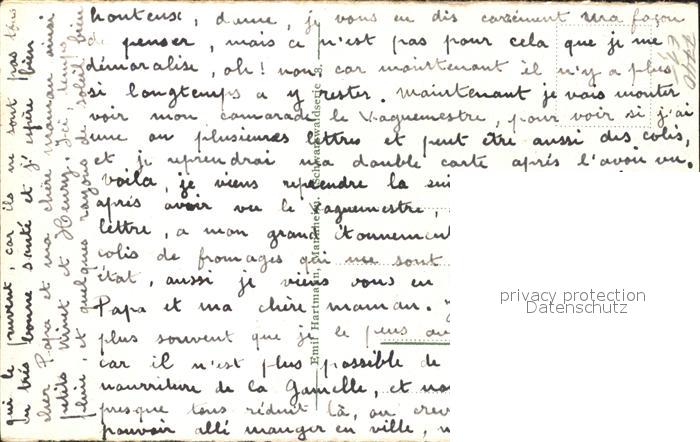 honteux, dame, je vous en dis carrément ma façon
de penser, mais ce n'est pas pour cela que je me
démoralise, oh! non car maintenant il n'y a plus
si longtemps a y rester. Maintenant je vais monter
voir mon camarade le Vaguemestre, pour voir si j'ai
une ou plusieures lettres et peut être aussi des colis,
et je reprendrai ma double carte après l'avoir vu.
Voila, je viens reprendre la sui
après avoir vu le Vaguemestre,
lettre, a mon grand étonnement
colis de fromages qui me sont
état, aussi je viens vous en
Papa et ma chère maman.
plus souvent que je le peus au
car il n'est plus possible de
nourriture de la Gamelle, et nous
presque tous réduit là, ou crev
pouvoir allé manger en ville,
qui le peuvent, car ils ne sont pas tous
en très bonne santé et j'espère bien
cher Papa et ma chère maman ainsi
petits Minet et Henry. Ici temps
pluie, et quelques rayons de soleil bien
Emil Hartmann, Mannheim. Schwarzwaldserie
privacy protection
Datenschutz